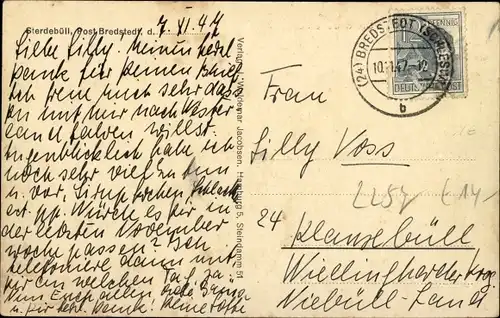 Sterdebüll, Post Bredstedt, d. 7.XI.47
Liebe Lilly. Meinen
Danke für Deinen Brief
Ich freue mich sehr dass
Du mit mir nach Wester
land fahren willst.
Augenblicklich habe ich
noch sehr viel zu tun
u. vor, Sirup kochen, Schlach
ten pp. Würde es Dir in
der letzten November
woche passen? Ich
telefoniere dann mit
Dir an welchem Tag, ja?
Nun Euch allen Gruß
u. Dir Deine
Verlag: Waldemar Jacobsen, Hamburg 5, Steindamm 51
(24) BREDSTEDT (SCHLESW)
10.11.47.-12
b
PFENNIG
DEUTSCHE POST
Frau
Lilly Voss
2257
24 Klanxbüll
Wiedingharder
Niebüll-Land